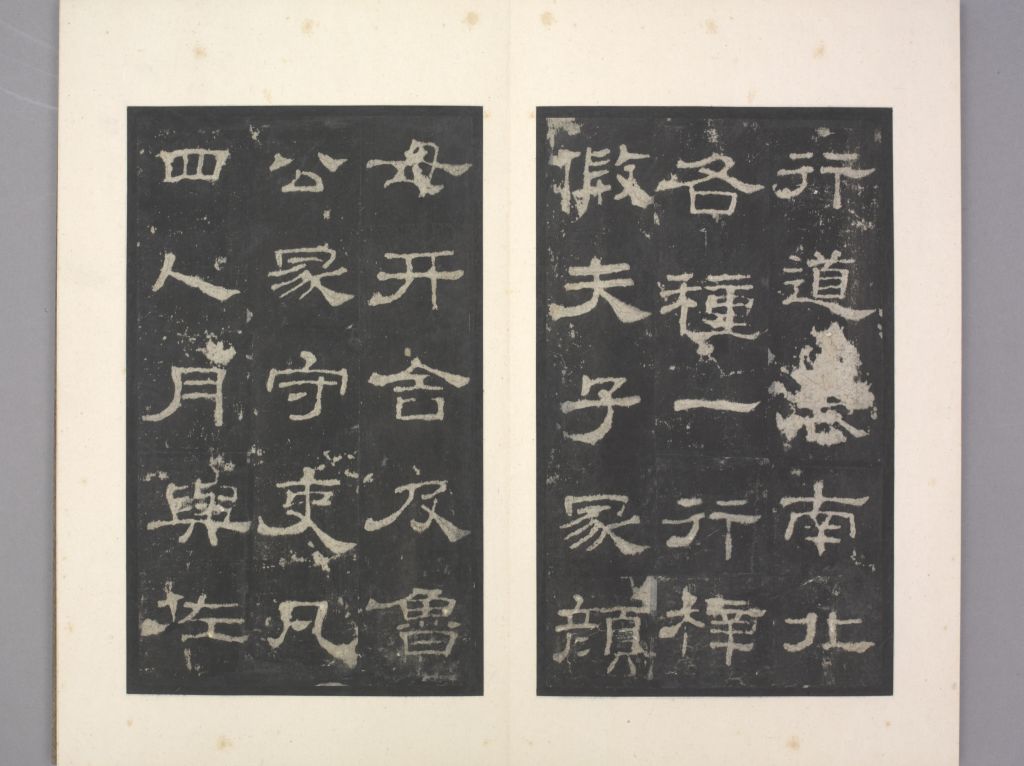 行道南北
各種一行梓
假夫子冢顏
母开舍及魯
公冢守吏凡
四人月與佐